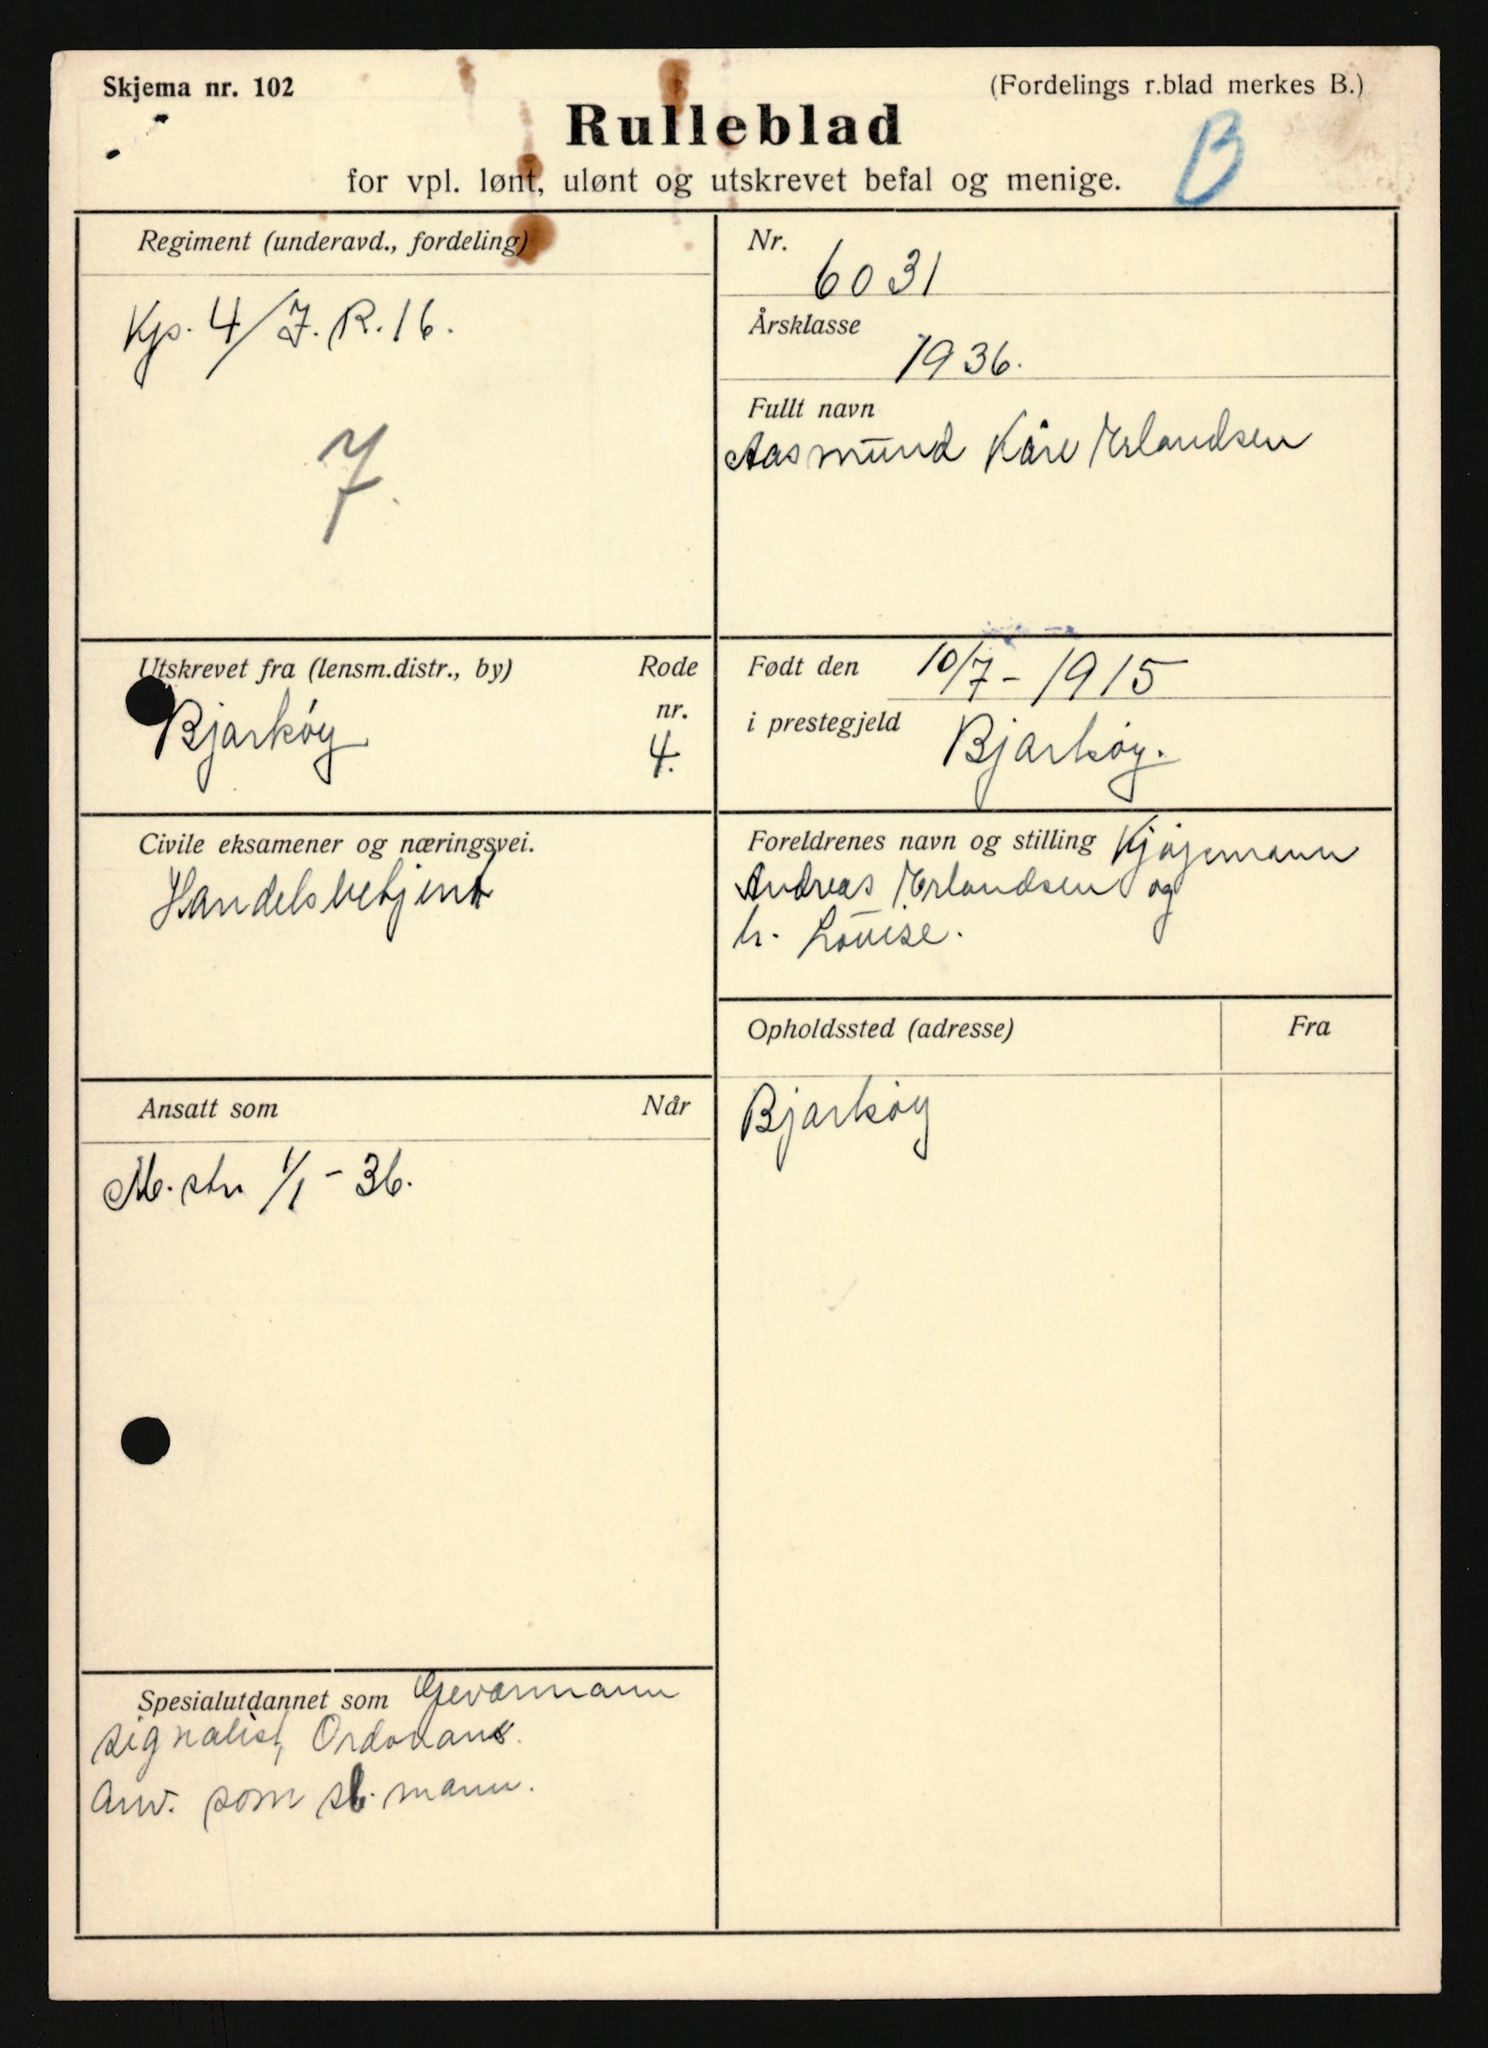 Skjema nr. 102
(Fordelings r.blad merkes B.)
Rulleblad
B
for vpl. lønt, ulønt og utskrevet befal og menige.
Regiment (underavd., fordeling)
Kp. 4/I.R.16.
7.
Nr.
6031
Årsklasse
1936.
Fullt navn
Aasmund Kåre Erlandsen
Utskrevet fra (lensm.distr., by)
Rode
nr.
Bjarkøy
4.
Født den 10/7-1915
i prestegjeld Bjarkøy.
Civile eksamener og næringsvei.
Handelsbetjent
Foreldrenes navn og stilling Kjøpmann
Andreas Erlandsen og
h. Louise.
Opholdssted (adresse)
Fra
Bjarkøy
Ansatt som
Når
M. str. 1/1-36.
Spesialutdannet som Geværmann
signalist, Ordonans.
Anv. som st. mann.